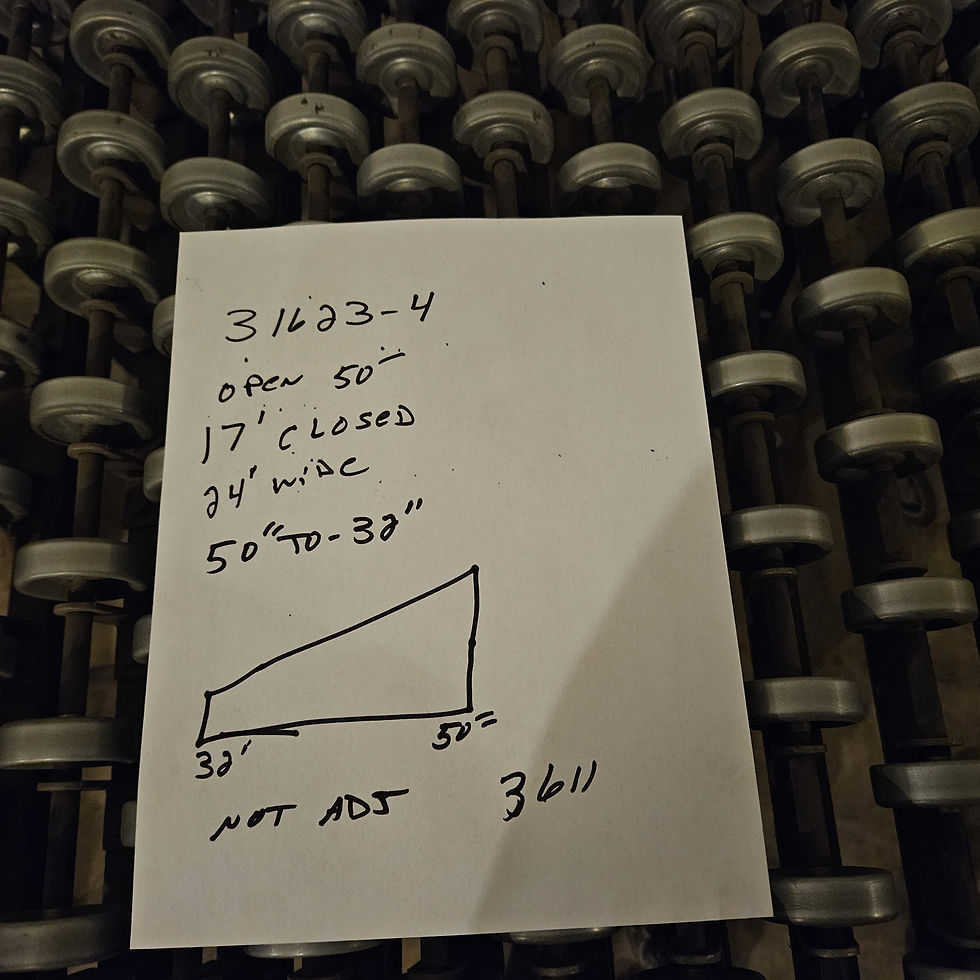 31623-4
OPEN 50'
17' CLOSED
24' WIDE
50" TO - 32"
32"
50"
NOT ADJ
3611